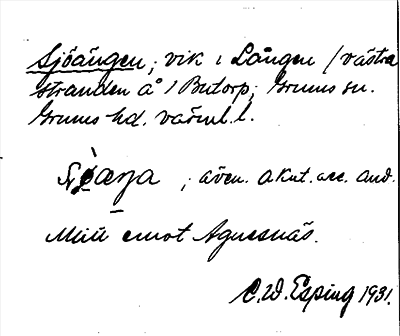 Sjöängen; vik i Lången / västra
stranden å / Butorp; Grums sn.
Grums hd. värml. l.
; även. akut. acc. and.
Mitt emot Agnesnäs.
C.W. Esping 1931.